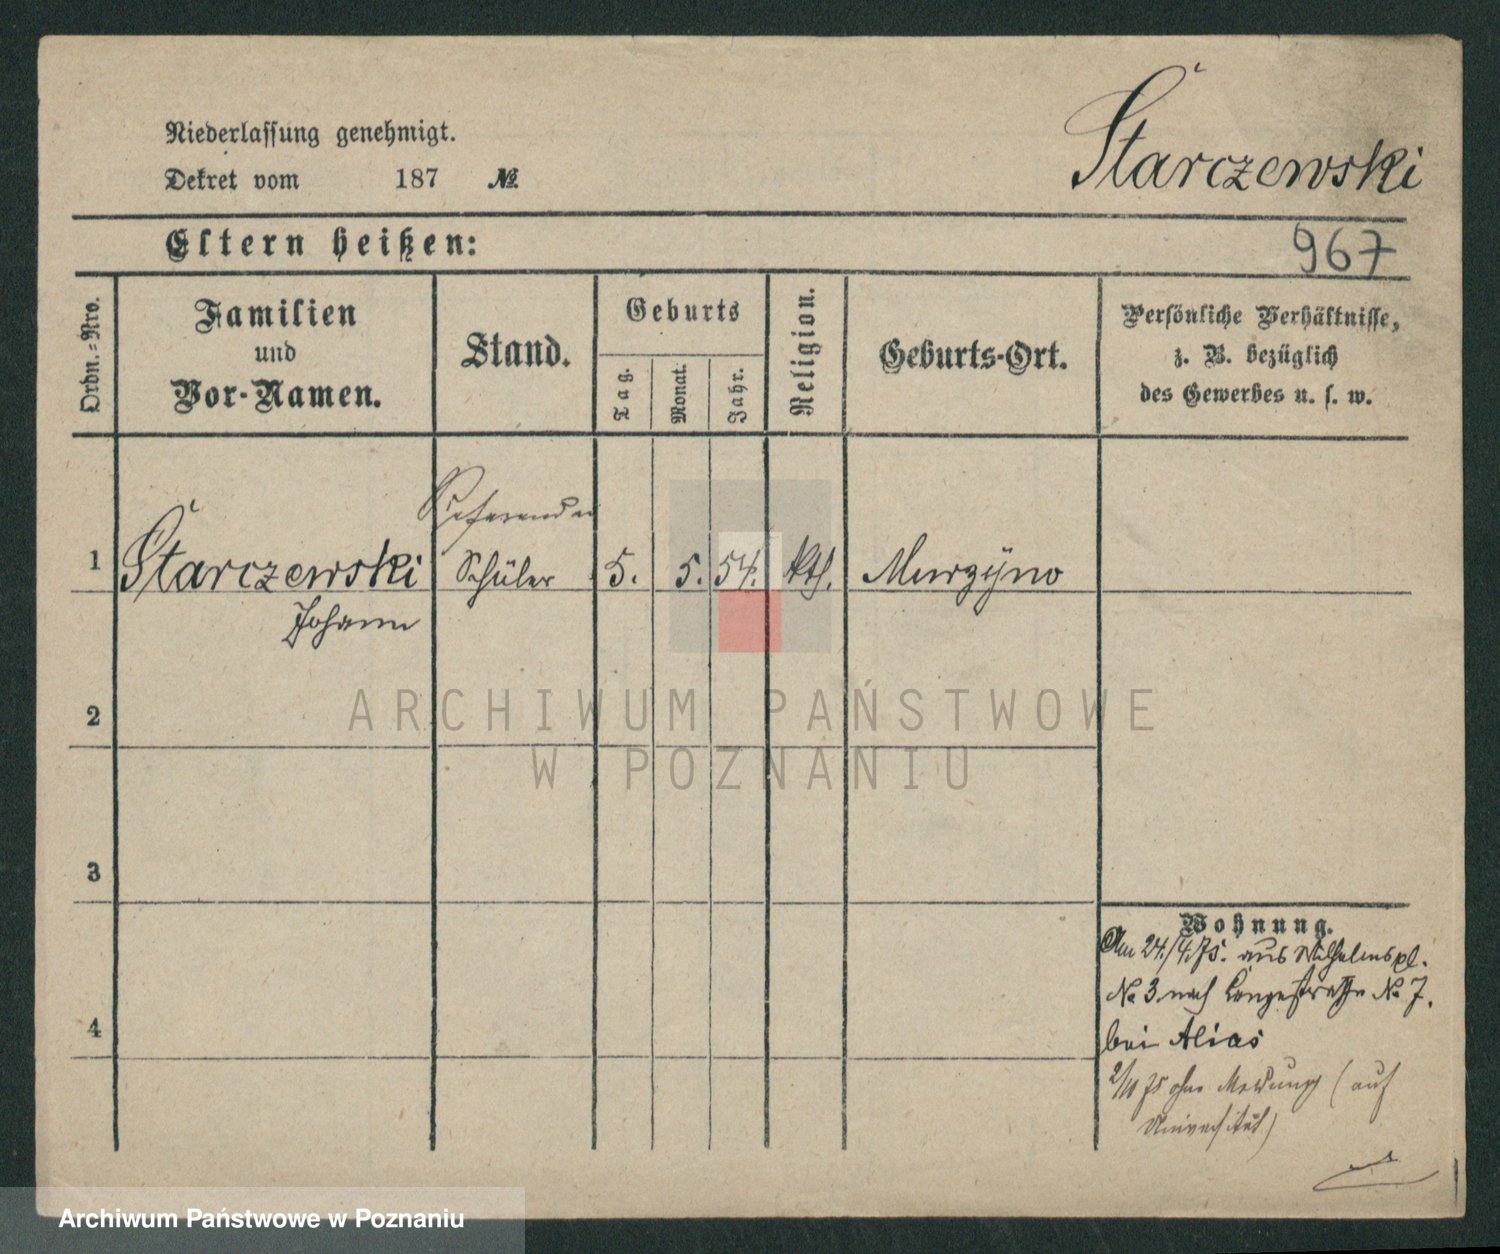 Niederlassung genehmigt.
Dekret vom 187 №
Starczewski
Eltern heißen:
967
Ordn.-Nro.
Familien
und
Vor-Namen.
Stand.
Geburts
Tag.
Monat.
Jahr.
Religion.
Geburts-Ort.
Persönliche Verhältnisse,
z. B. bezüglich
des Gewerbes u. s. w.
Referendar
1 Starczewski Schüler 5. 5. 54. kth. Murzÿno
Johann
ARCHIWUM PAŃSTWOWE
W POZNANIU
2
3
4
Wohnung.
Am 24./4.75. aus Wilhelmspl.
No 3 nach Langestraße No 7.
bei Alias
2/11 75 ohne Meldung (auf
Universität)
Archiwum Państwowe w Poznaniu